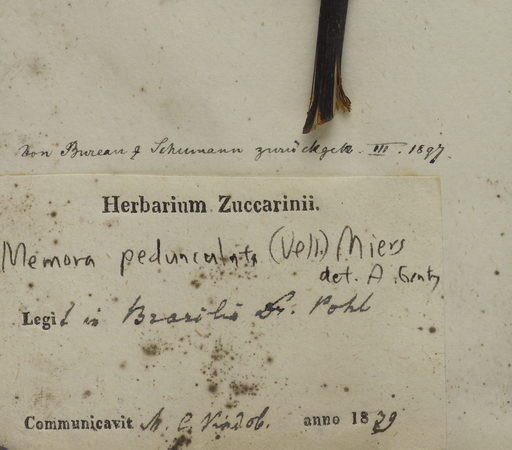 von Bureau & Schumann zurückgek. III. 1897.
Herbarium Zuccarinii.
Memora pedunculata (Vell.) Miers
det. A. Gentry
Legit in Brasilia Dr. Pohl
Communicavit M. C. Vindob. anno 1839